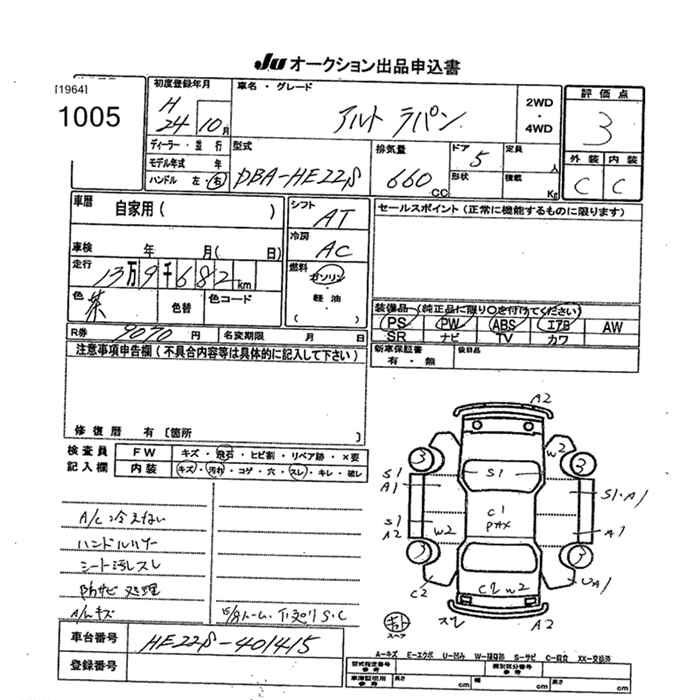 JU オークション出品申込書
[1964]
1005
初度登録年月
H 24 10月
車名・グレード
アルト ラパン
2WD
・
4WD
評価点
3
外装 内装
C C
ディーラー・並行
モデル年式 年
ハンドル 左・右
型式
DBA-HE22S
排気量
660 CC
ドア
5
形状
定員
人
積載
Kg
車歴
自家用( )
シフト
AT
セールスポイント(正常に機能するものに限ります)
車検 年 月( 日)
冷房
AC
走行
13万9千682km
燃料
ガソリン
・
軽油
色
茶
色替
色コード
装備品(純正品に限り○を付けてください)
PS PW ABS エアB AW
SR ナビ TV カワ
R券 9070 円 名変期限 月 日
新車保証書
有・無
後日品
注意事項申告欄(不具合内容等は具体的に記入して下さい)
修復歴 有〔箇所
検査員
記入欄
FW キズ・飛石・ヒビ割・リペア跡・×要
内装 キズ・汚れ・コゲ・穴・スレ・キレ・破レ
A/C冷えない
シート汚レスレ
防サビ処理
A/Wキズ
下廻りS・C
車台番号 HE22S-401415
登録番号
A2
3 W2 3
S1
A1
S1
S1・A1
C1
PAX
S1
A2
W2
A1
3 3
C2
C2 W2
UA1
スレ
A2
スペア
A-キズ E-エクボ U-凹み W-補修跡 S-サビ C-腐食 XX-交換済
型式指定番号
参考
類別区分番号
参考
車庫証明用
参考
長さ cm 幅 cm 高さ cm